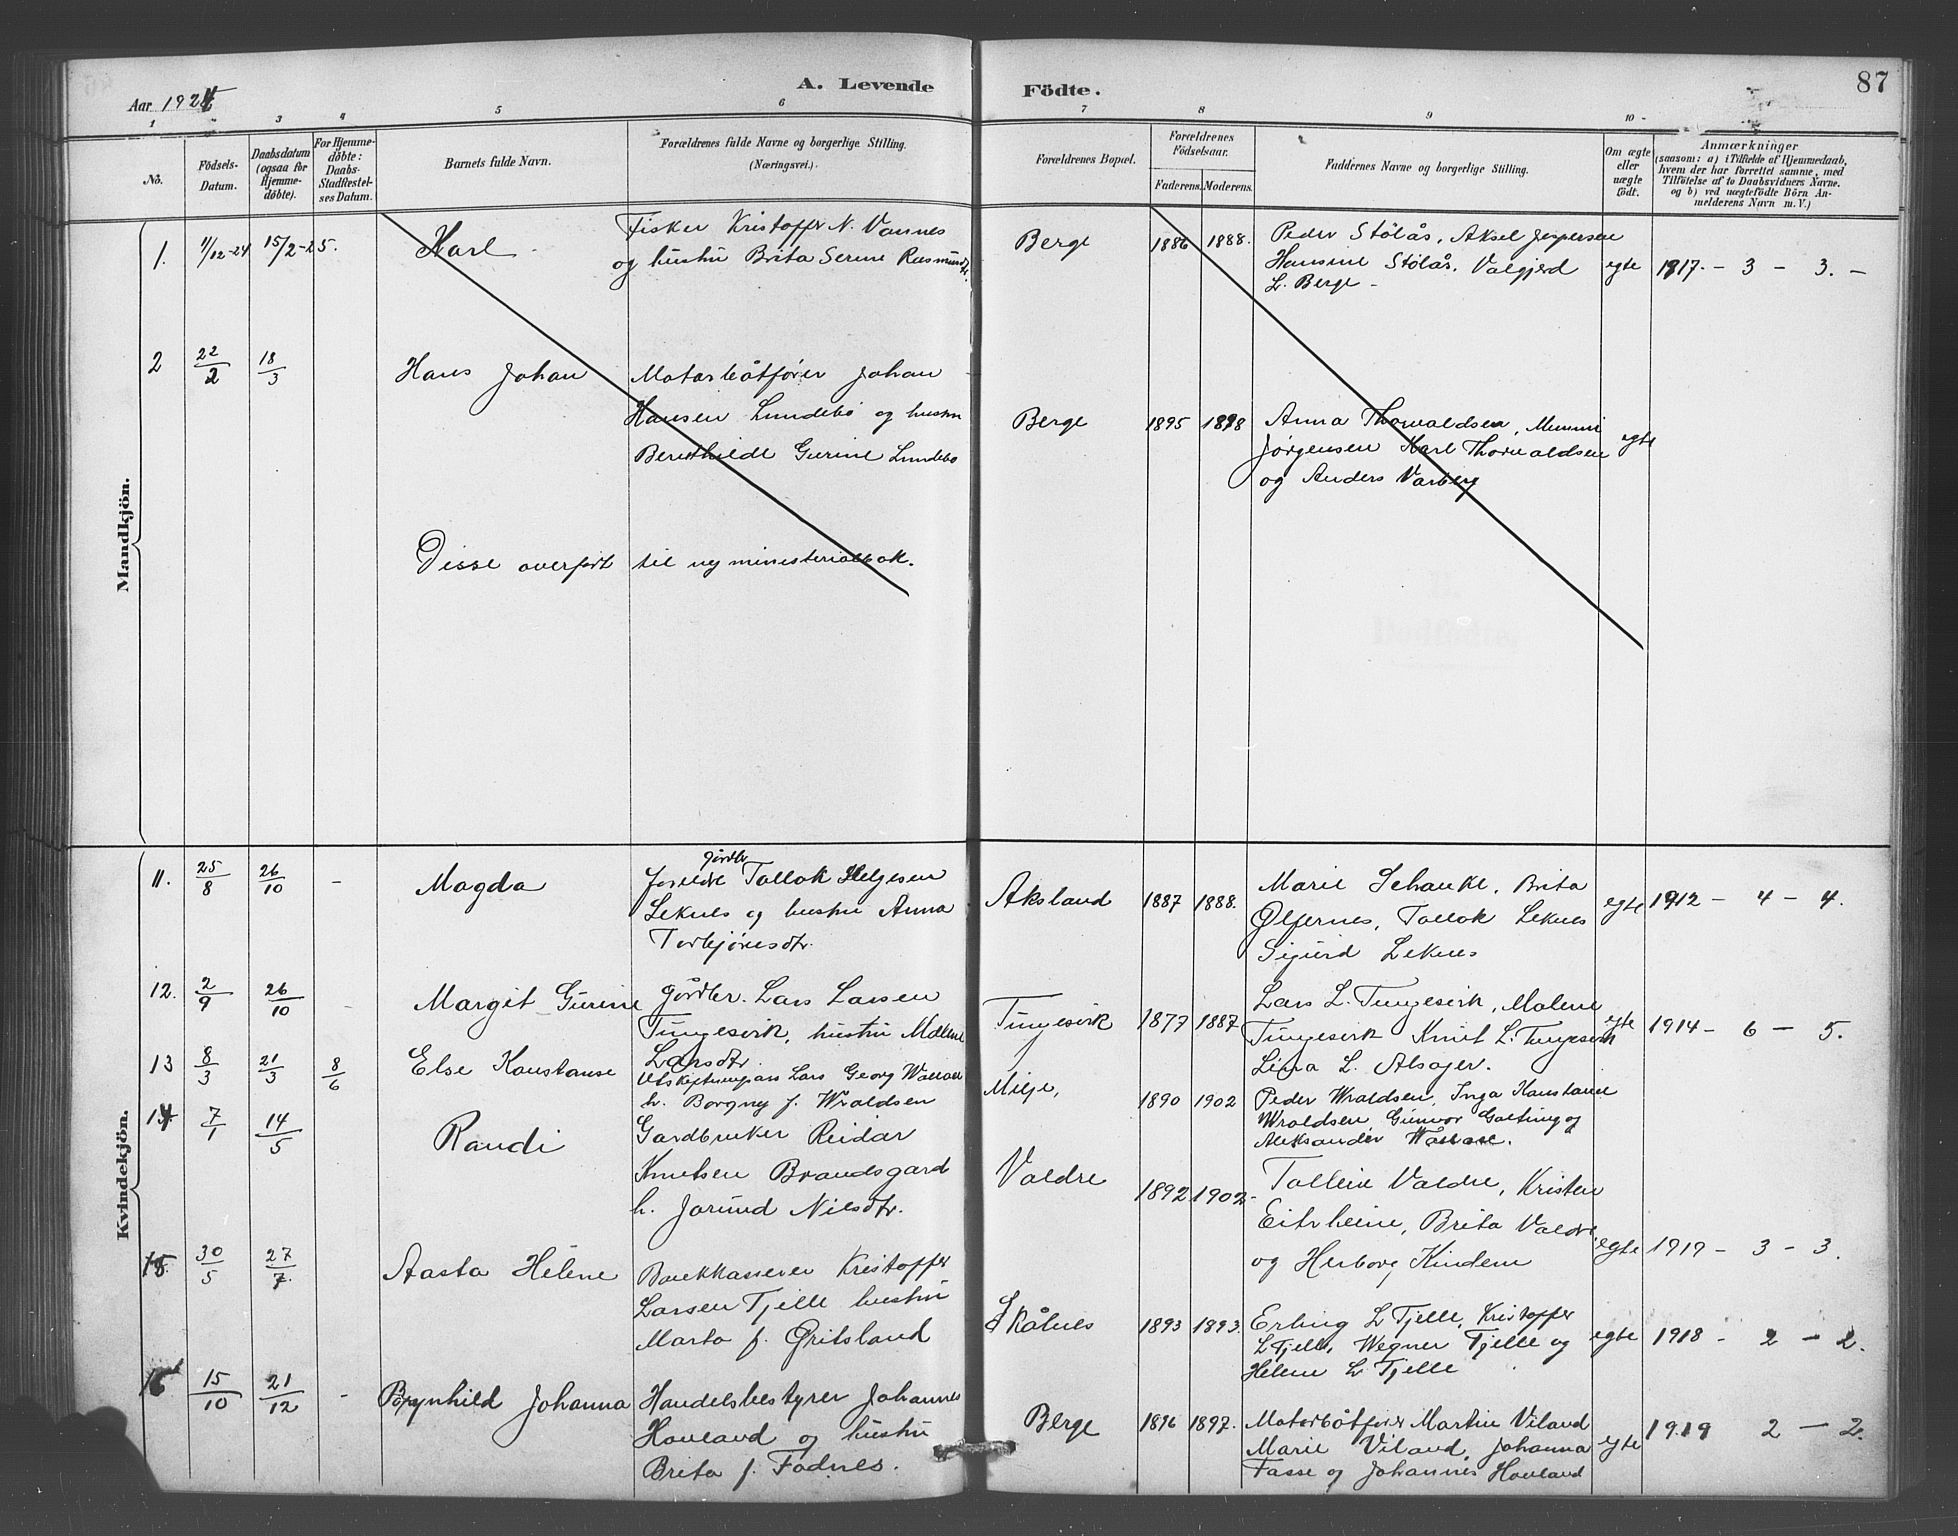 Aar 1924 A. Levende Födte. 87
1 3 4 5 6 7 8 9 10
No.
Födsels-Datum.
Daabsdatum (ogsaa for Hjemme-döbte).
For Hjemme-döbte: Daabs-Stadfestel-ses Datum.
Barnets fulde Navn.
Forældrenes fulde Navne og borgerlige Stilling.
(Næringsvei.)
Forældrenes Bopæl.
Forældrenes Födselsaar.
Faderens. Moderens.
Faddernes Navne og borgerlige Stilling.
Om ægte eller uægte födt.
Anmærkninger
(saasom: a) i Tilfælde af Hjemmedaab,
hvem der har forrettet samme, med
Tilföielse af to Daabsvidners Navne.
og b) ved uegtefödte Börn An-
melderens Navn m. V.)
Mandkjön.
1. 1/12-24 15/2-25. Karl
Fisker Kristoffer N. Vannes
og hustru Brita Serine Rasmusdtr.
Berge 1886 1888.
Peder Stölås, Aksel Jespersen
Hansine Stölås, Valgjerd
L. Berge -
egte 1917. - 3 - 3. -
2 22/2 18/3 Hans Johan
Motorbåtfører Johan
Hansen Lundebø og hustru
Berethilde Gurine Lundebø
Berge 1895 1898
Anna Thorvaldsen, Mimmi
Jørgensen Karl Thorvaldsen
og Anders Varberg
egte
Disse overført til ny ministerialbok.
Kvindekjön.
11. 25/8 26/10 - Magda
gårdbr
Tollak Helgesen
Leknes og hustru Anna
Torbjørnsdtr.
Aksland 1887 1888.
Marie Schanke, Brita
Ølfernes, Tollak Leknes
Sigurd Leknes
egte 1912 - 4 - 4.
12. 2/9 26/10 - Margit Gurine
gårdbr. Lars Larsen
Tungesvik, hustru Malene
Larsdtr.
Tungesvik 1877 1887
Lars L. Tungesvik, Malene
Tungesvik Knut L. Tungesvik
Lina L. Alsager.
egte 1914 - 6 - 5.
13 8/3 21/3 8/6 Else Konstanse
Lars Georg
h. Borgny f. Wraldsen
Milje, 1890 1902
Peder Wraldsen, Inga Konstanse
Wraldsen, Gunvor Goltung og
Aleksander
14 7/1 14/5 Randi
Gardbruker Reidar
Knutsen Brandsgard
h. Jorund Nilsdtr.
Valdre 1892 1902-
Tolleiv Valdre, Kristen
Eitrheim, Brita Valdre
og Herborg Kindem
egte 1919 - 3 - 3.
15. 30/5 27/7. Aasta Helene
Bankkasserer Kristoffer
Larsen Tjelle hustru
Marta f. Gritsland
Skålnes 1893 1893.
Erling L Tjelle, Kristoffer
L Tjelle, Wegner Tjelle og
Helene L Tjelle
egte 1918 - 2 - 2.
16 15/10 21/12 - Brynhild Johanna
Handelsbestyrer Johannes
Havland og hustru
Brita f. Fadnes.
Berge 1896 1897.
Motorbåtfører Martin Viland
Marie Viland, Johanna
Fasse og Johannes Havland
egte 1919 2 - 2.